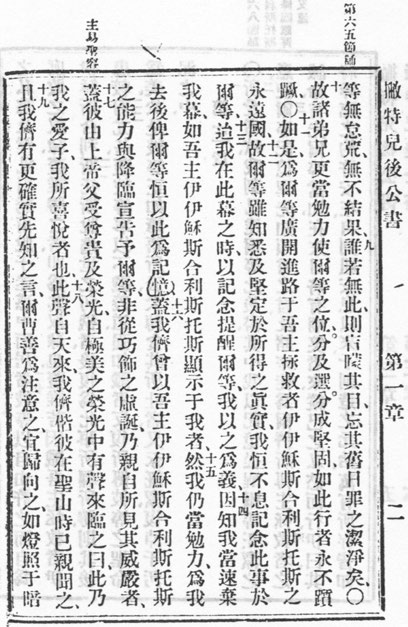 第六五節誦
主易聖容
撇特兒後公書
第一章
二
等無怠荒無不結果、九誰若無此、則盲矇其目、忘其舊日罪之潔淨矣、〇
十故諸弟兄更當勉力、使爾等之位分及選分成堅固、如此行者、永不躓
蹶〇十一如是、爲爾等廣開進路于吾主拯救者伊伊穌斯合利斯托斯之
永遠國、十二故爾等雖知悉及堅定於所得之眞實、我恒不息記念此事於
爾等、十三迨我在此幕之時、以記念提醒爾等、我以之爲義、十四因知我當速棄
我幕、如吾主伊伊穌斯合利斯托斯顯示于我者、十五然我仍當勉力、爲我
去後俾爾等恒以此爲記憶、十六蓋我儕曾以吾主伊伊穌斯合利斯托斯
之能力與降臨宣告予爾等、非從巧飾之虛誕、乃親自所見其威嚴者、
十七蓋彼由上帝父受尊貴及榮光、自極美之榮光中有聲來臨之曰、此乃
我之愛子、我所喜悅者也、十八此聲自天來、我儕偕彼在聖山時已親聞之、
十九且我儕有更確實先知之言、爾曹善爲注意之、宜歸向之、如燈照于暗